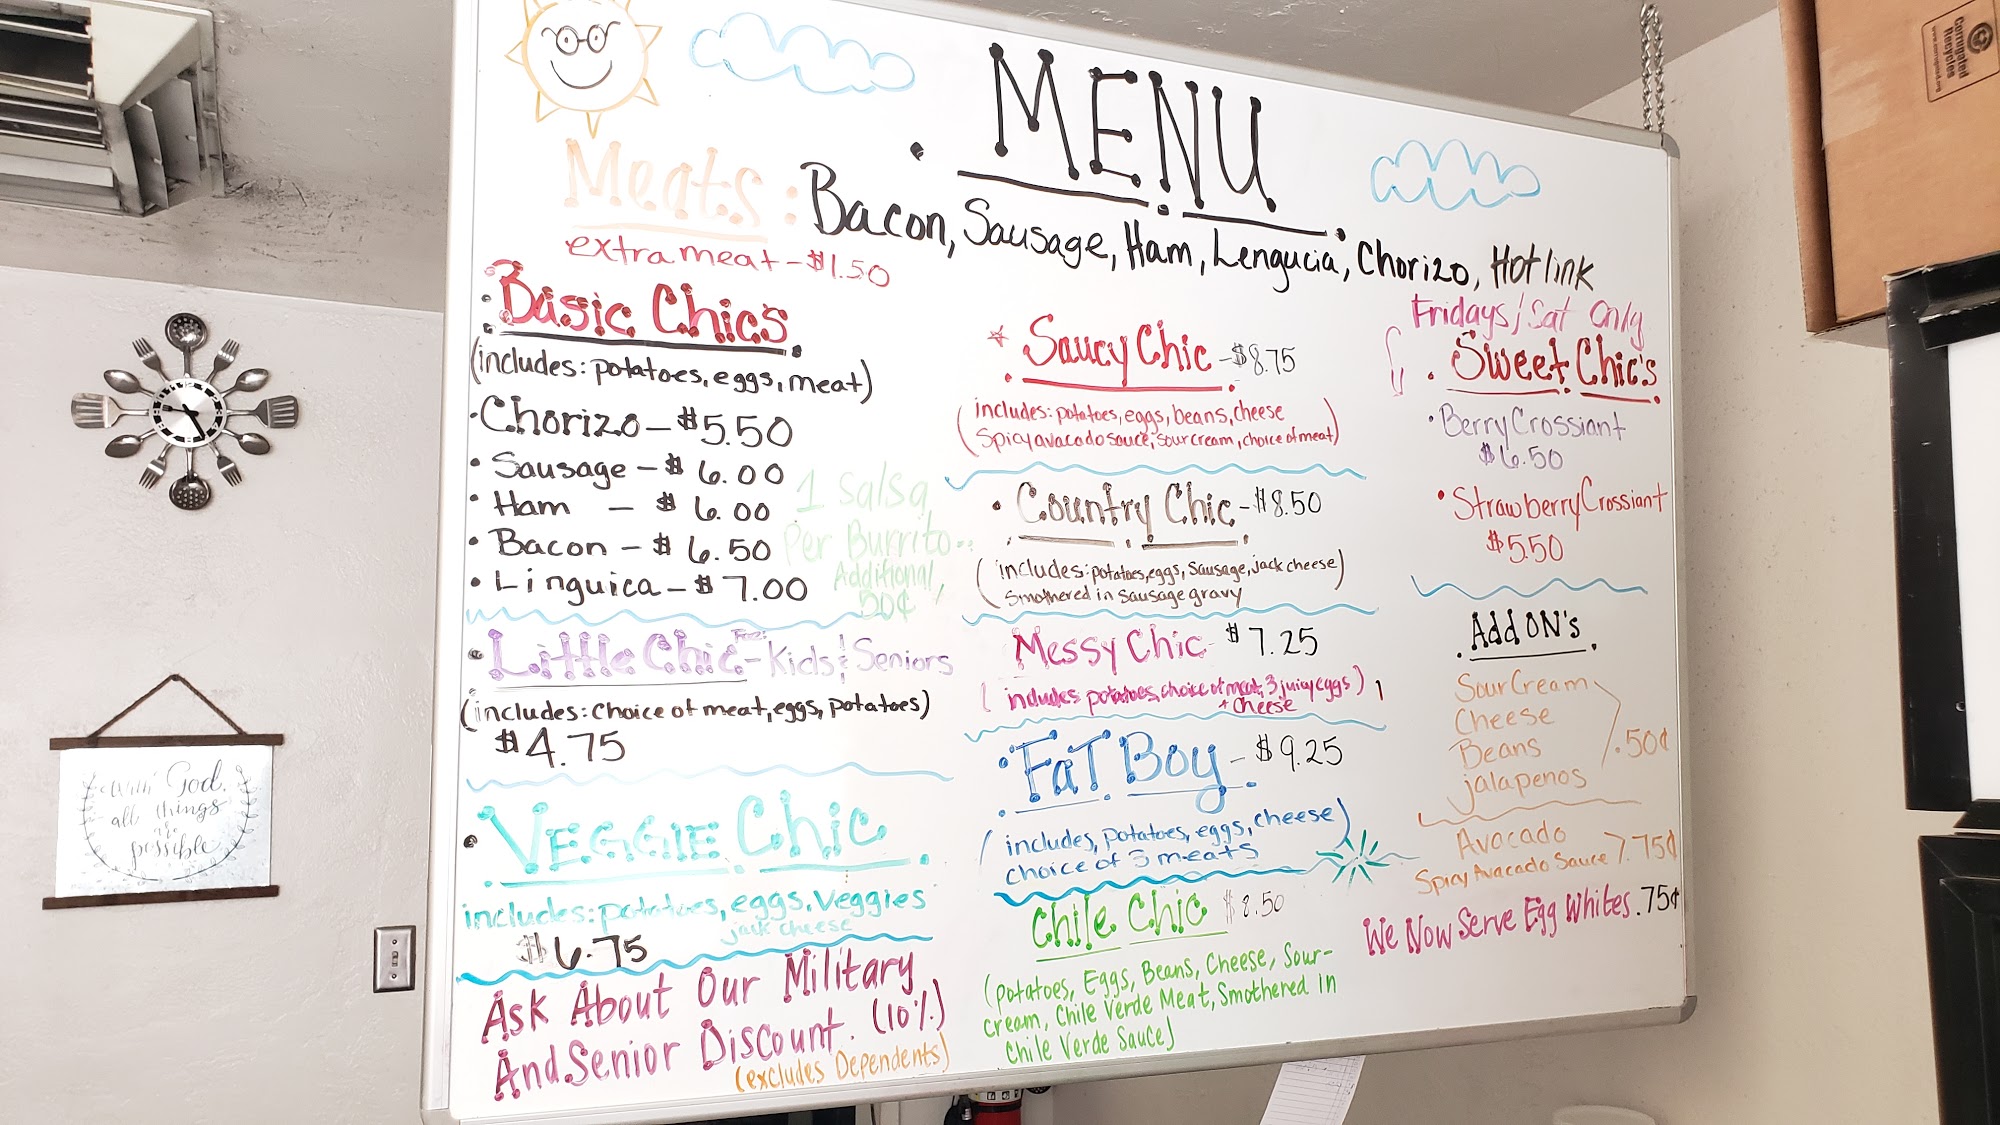 MENU
Meats: Bacon, Sausage, Ham, Lengucia, Chorizo, Hot link
extra meat - $1.50
Basic Chics
(includes: potatoes, eggs, meat)
Chorizo - $5.50
Sausage - $6.00
Ham - $6.00
Bacon - $6.50
Linguica - $7.00
1 Salsa
Per Burrito..
Additional,
50¢
Little Chic - Kids & Seniors
(includes: choice of meat, eggs, potatoes)
$4.75
Veggie Chic
includes: potatoes, eggs, Veggies
jack cheese
$6.75
Ask About Our Military
And Senior Discount. (10%)
(excludes Dependents)
Saucy Chic - $8.75
(includes: potatoes, eggs, beans, cheese
Spicy avacado sauce, sour cream, choice of meat)
Country Chic - $8.50
(includes: potatoes, eggs, sausage, jack cheese)
Smothered in sausage gravy
Messy Chic - $7.25
(includes potatoes, choice of meat, 3 juicy eggs)
+ cheese
Fat Boy - $9.25
(includes, potatoes, eggs, cheese)
choice of 3 meats
Chile Chic $8.50
(potatoes, Eggs, Beans, Cheese, Sour-
cream, Chile Verde Meat, Smothered in
Chile Verde Sauce)
Fridays/Sat Only
Sweet Chic's
Berry Crossiant
$6.50
Strawberry Crossiant
$5.50
Add ON's
Sour Cream
Cheese
Beans
jalapenos
.50¢
Avocado
Spicy Avacado Sauce
.75¢
We Now Serve Egg Whites .75¢
With God,
all things
are
possible
Corrugated
Recycles